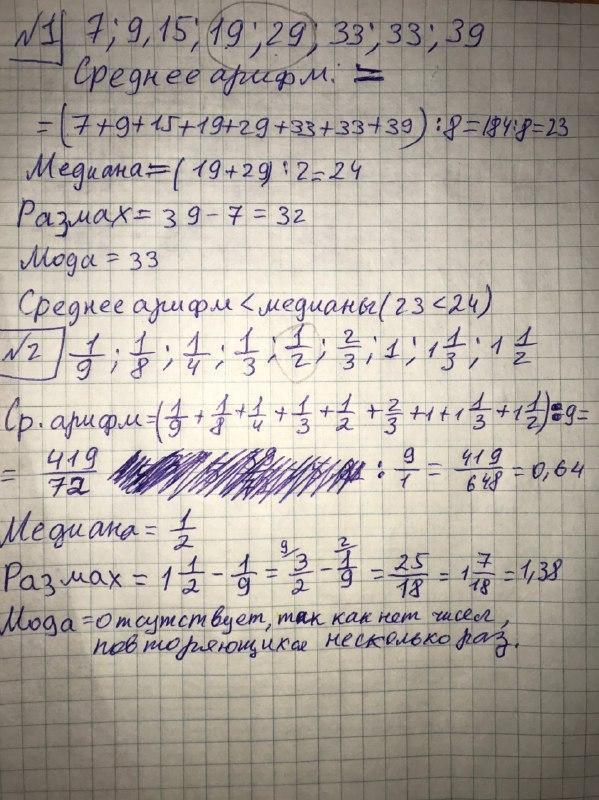 №1 7; 9, 15; 19; 29, 33; 33; 39
Среднее арифм: =
= (7+9+15+19+29+33+33+39) : 8 = 184:8 = 23
Медиана = (19+29) : 2 = 24
Размах = 39 - 7 = 32
Мода = 33
Среднее арифм < медианы (23 < 24)
№2 1/9; 1/8; 1/4; 1/3; 1/2; 2/3; 1; 1 1/3; 1 1/2
Ср. арифм = (1/9 + 1/8 + 1/4 + 1/3 + 1/2 + 2/3 + 1 + 1 1/3 + 1 1/2) : 9 =
= 419/72 : 9/1 = 419/648 = 0,64
Медиана = 1/2
Размах = 1 1/2 - 1/9 = 9/ 3/2 - 2/ 1/9 = 25/18 = 1 7/18 = 1,38
Мода = отсутствует, так как нет чисел,
повторяющихся несколько раз.